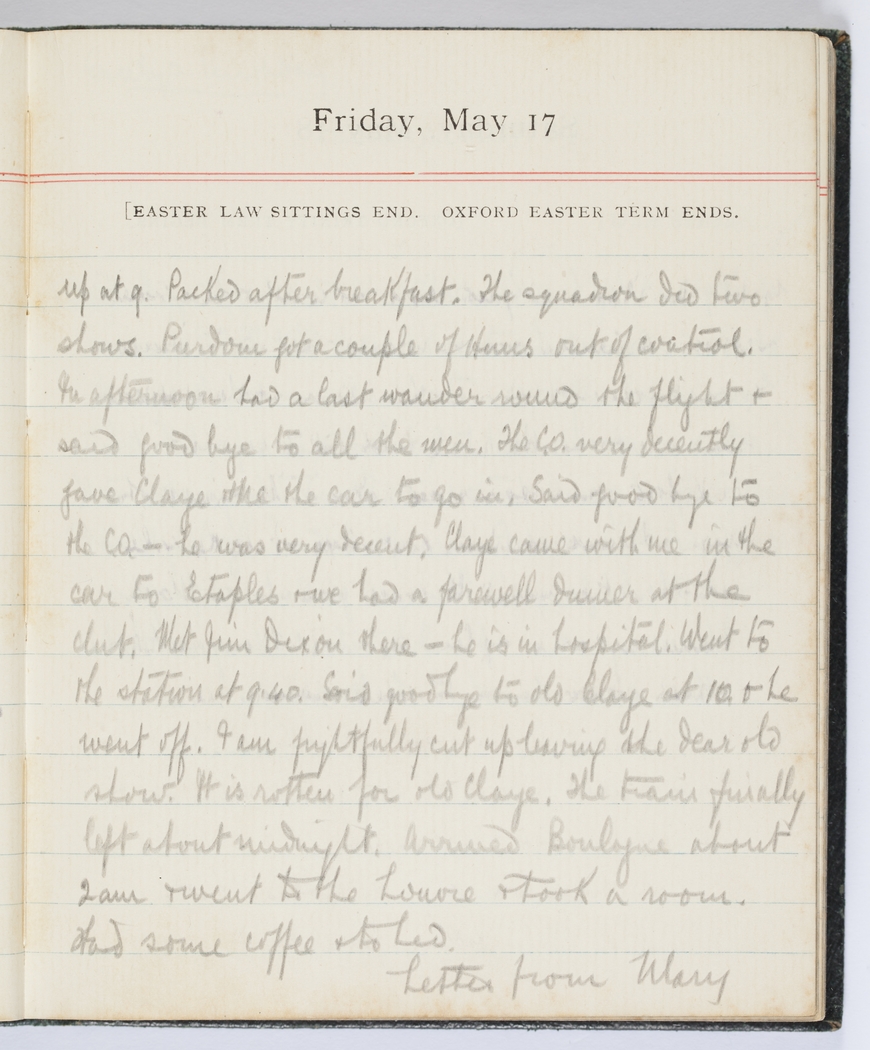 Friday, May 17
[EASTER LAW SITTINGS END. OXFORD EASTER TERM ENDS.
up at 9. Packed after breakfast. The squadron did two
shows. Purdom got a couple of Huns out of control.
In afternoon had a last wander round the flight +
said good bye to all the men. The C.O. very decently
gave Claye & me the car to go in. Said good bye to
the C.O. – he was very decent. Claye came with me in the
car to Etaples & we had a farewell dinner at the
club. Met Jim Dixon there – he is in hospital. Went to
the station at 9.40. Said goodbye to old Claye at 10. & he
went off. I am frightfully cut up leaving the dear old
show. It is rotten for old Claye. The train finally
left about midnight. Arrived Boulogne about
2 am & went to the Louvre & took a room.
Had some coffee & to bed.
Letter from Mary